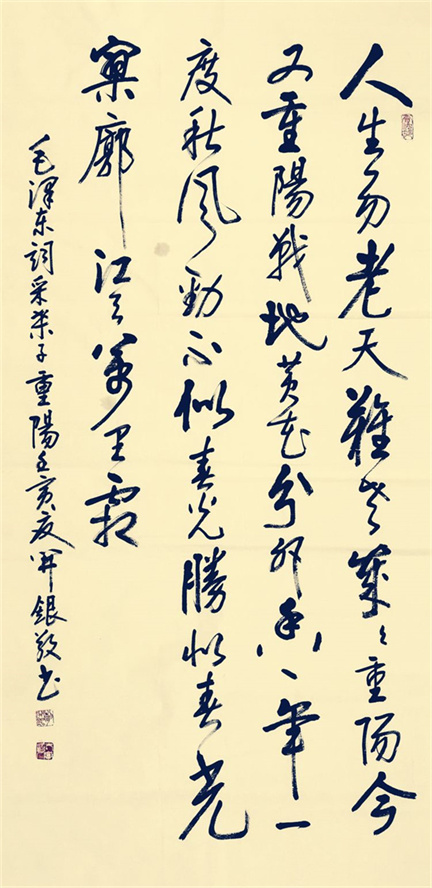 人生易老天難老歲々重陽今
又重陽戰地黄花分外香一年一
度秋風勁不似春光勝似春光
寥廓江天萬里霜
毛澤东詞采桑子重陽 銀敬书